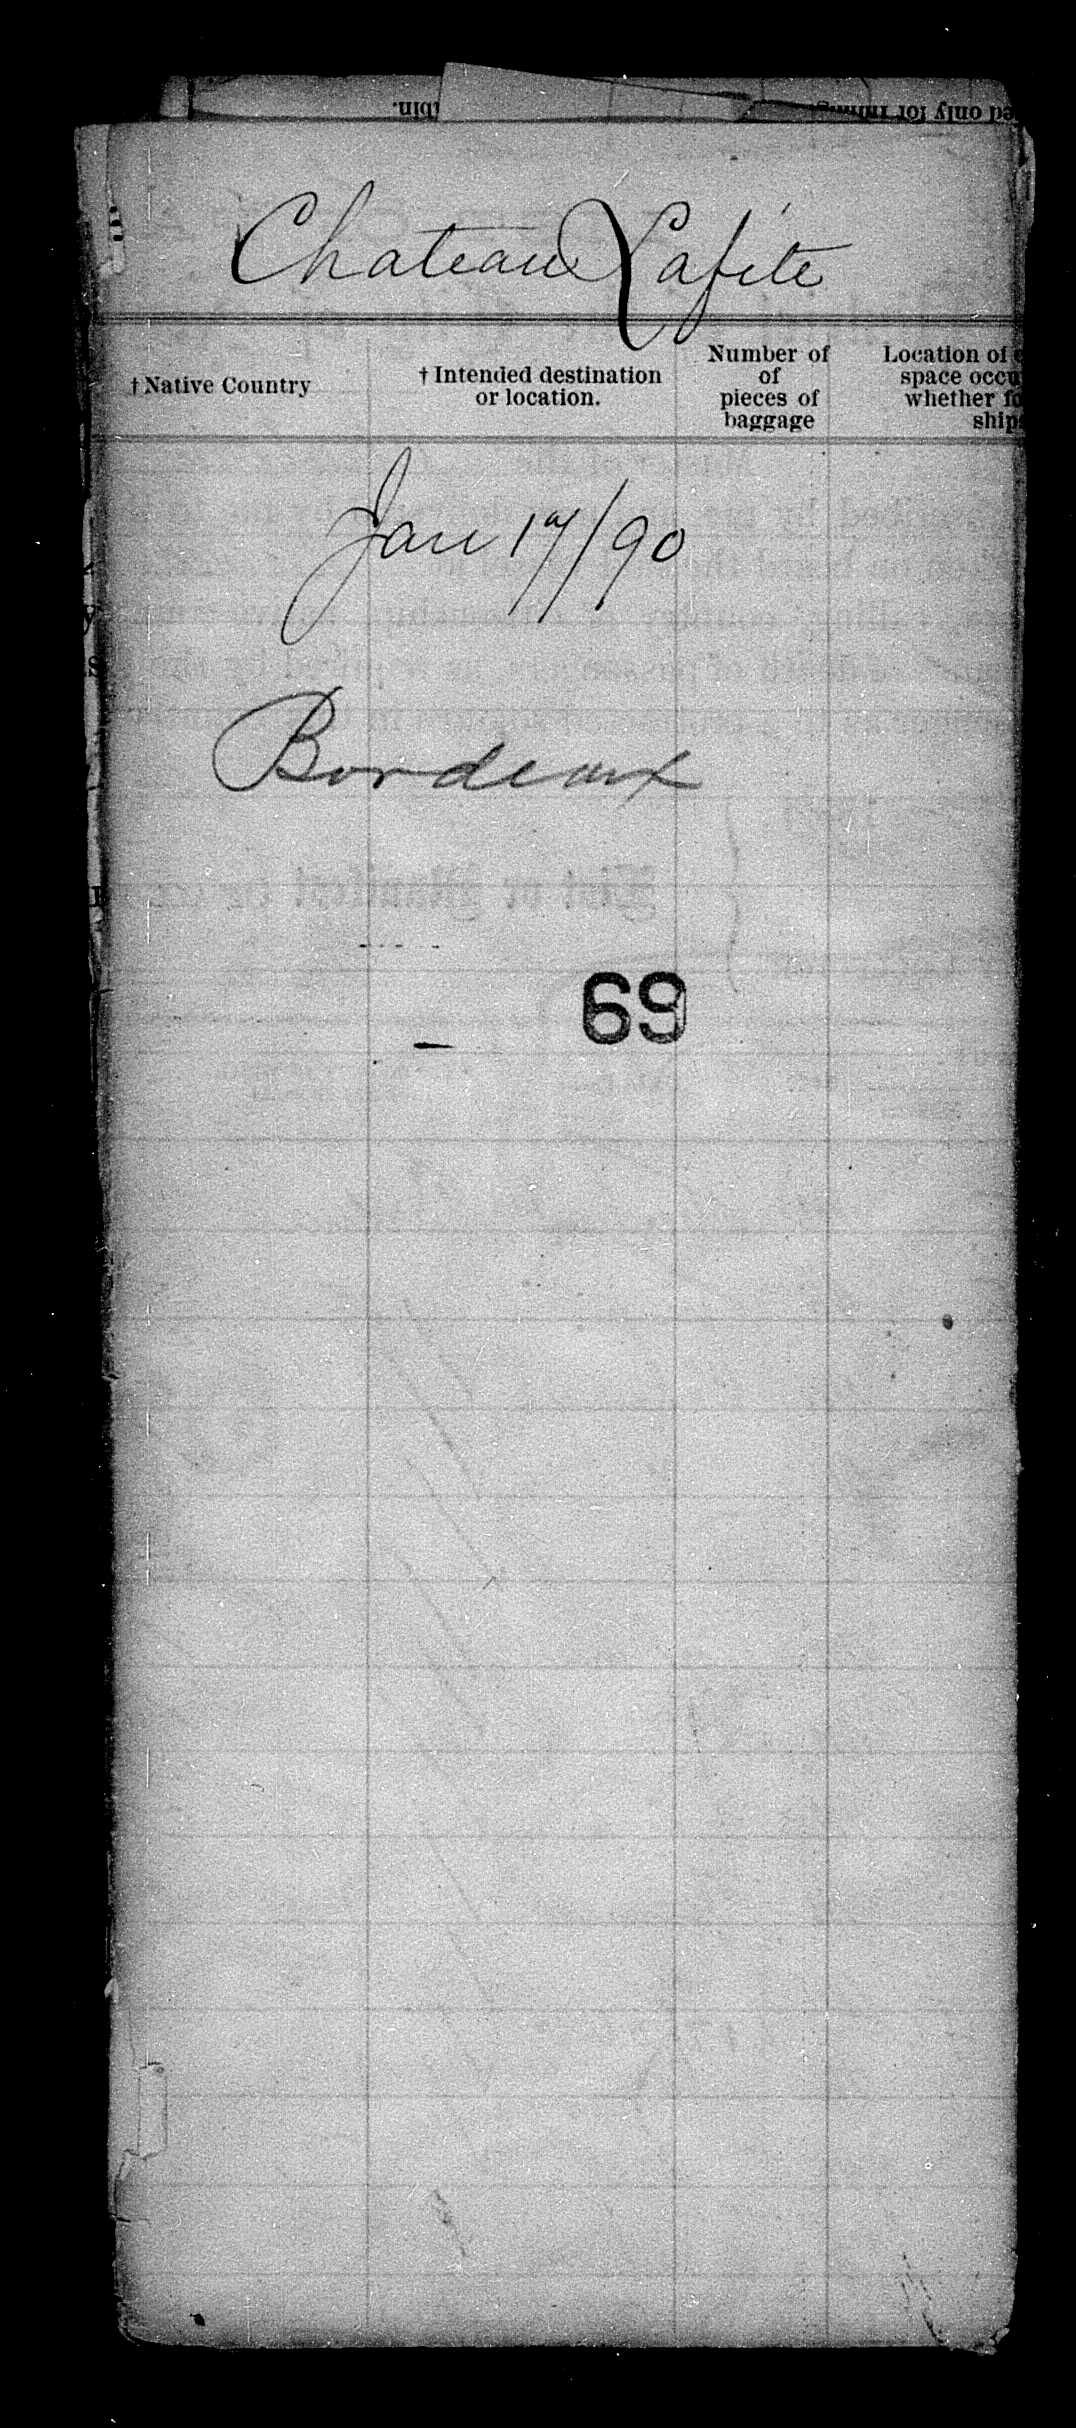 ed only for
Chateau Lafite
† Native Country
† Intended destination
or location.
Number of
of
pieces of
baggage
Location of
space occu
whether fo
ship
Jan 17/90
Bordeaux
List or Manifest
69